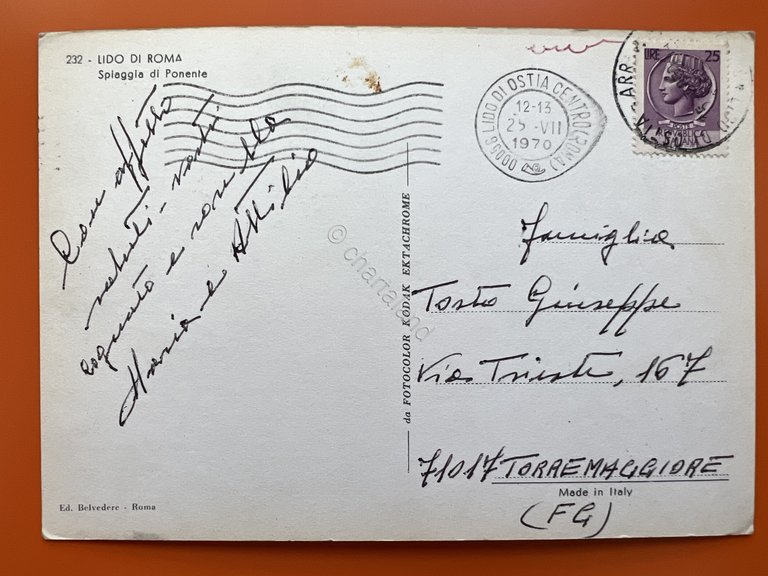 232 - LIDO DI ROMA
Spiaggia di Ponente
Con affetto
saluti - vostri
cognato e sorella
Maria e Attilio
00056 LIDO DI OSTIA CENTRO (ROMA)
12-13
25-VII
1970
LIRE 25
POSTE
REPVBBLICA
ITALIANA
ARR.
Famiglia
Tosto Giuseppe
Via Trieste, 167
71017 TORREMAGGIORE
(FG)
Made in Italy
da FOTOCOLOR KODAK EKTACHROME
© chartaland
Ed. Belvedere - Roma